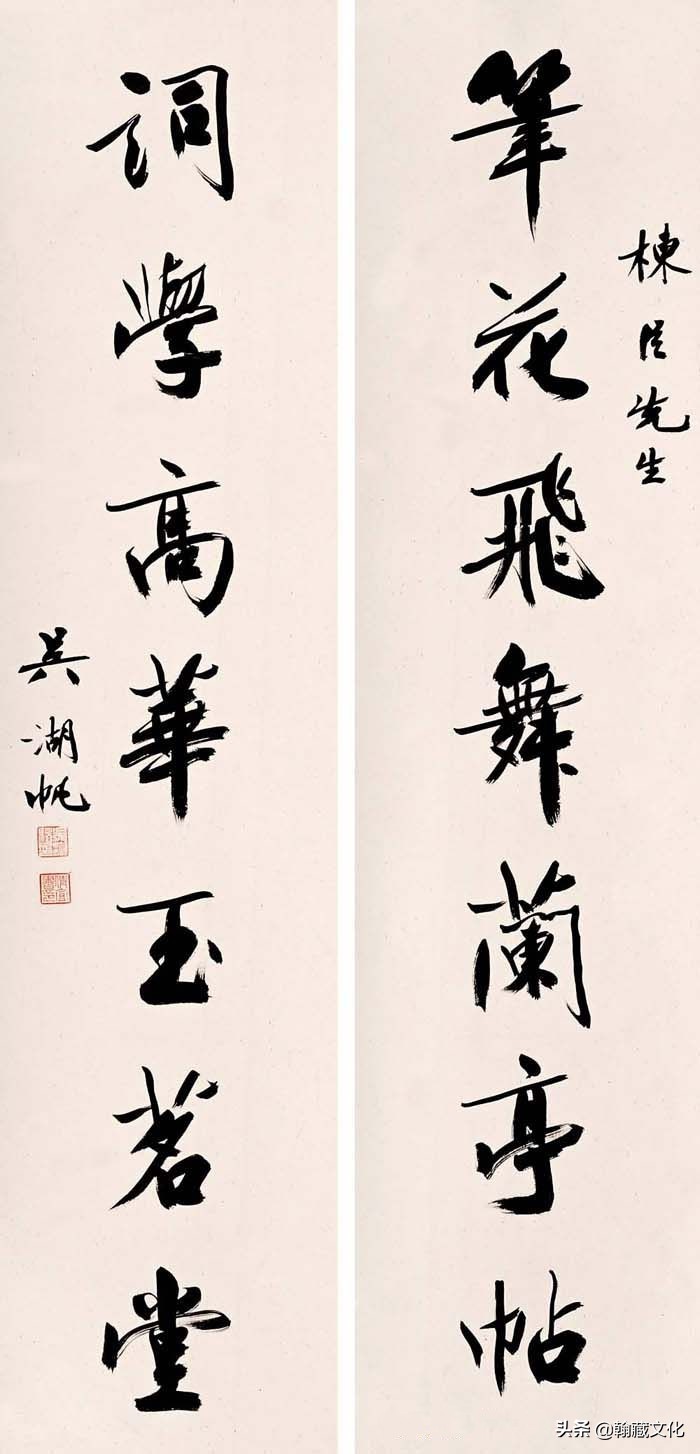 棟臣先生
筆花飛舞蘭亭帖
詞學高華玉茗堂
吳湖帆
头条 @翰藏文化